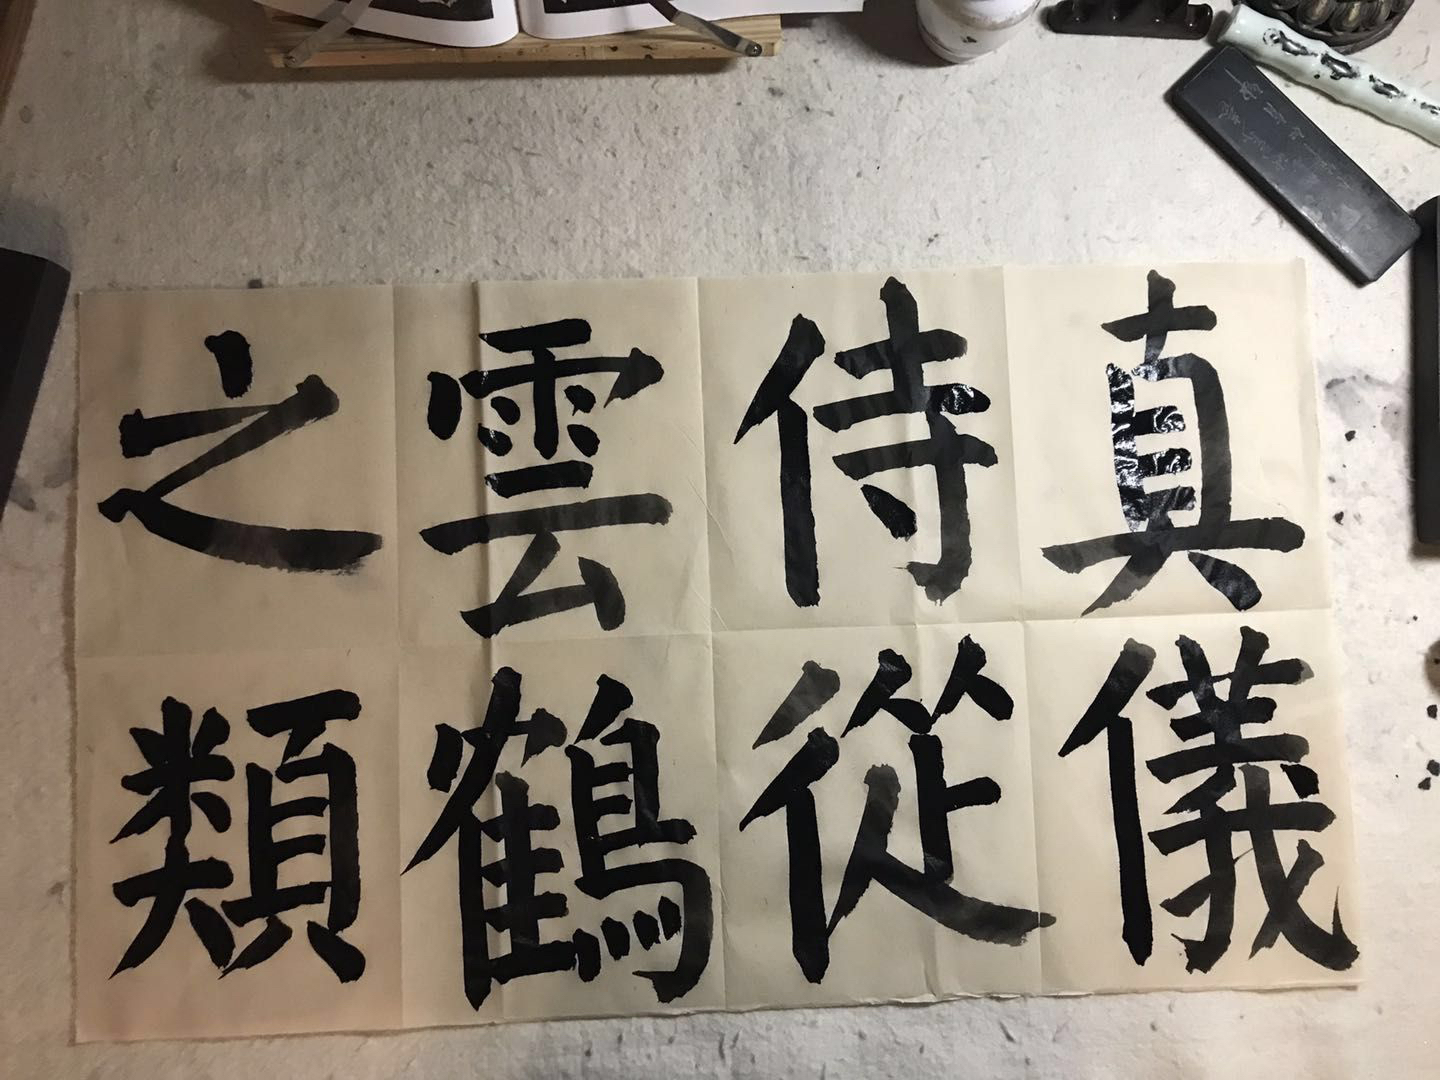 真儀
侍從
雲鶴
之類